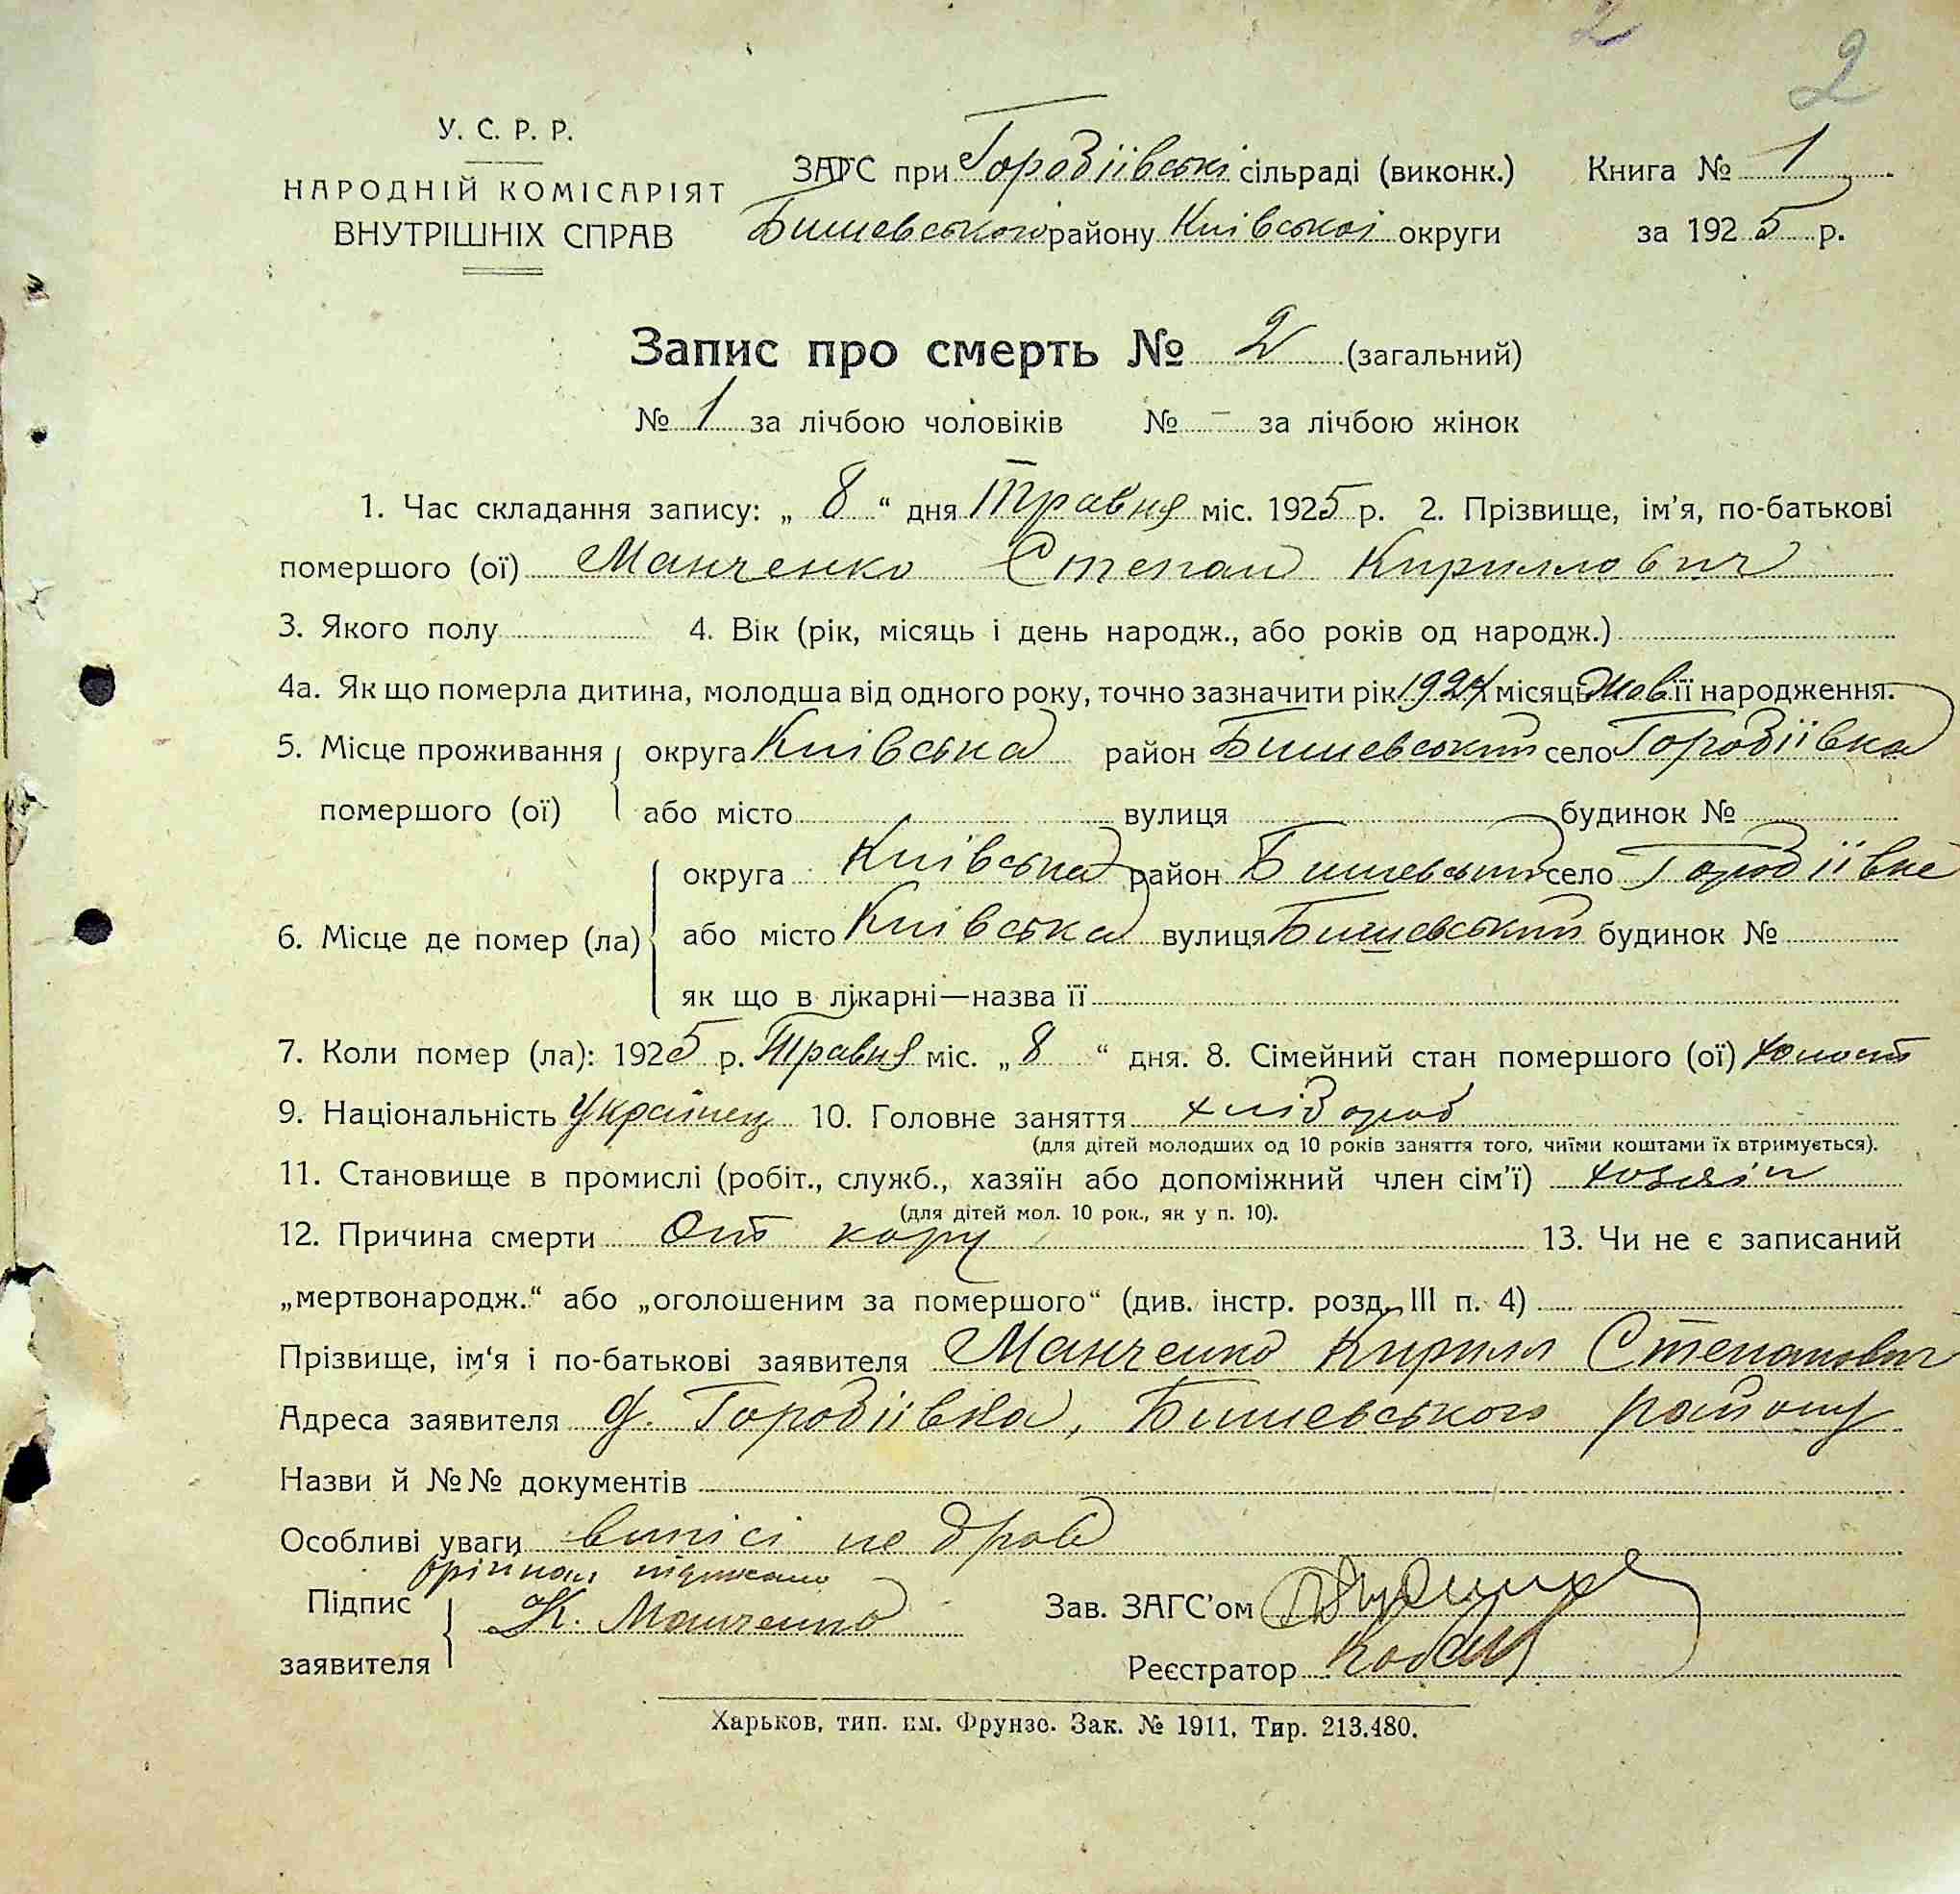 2
2
У. С. Р. Р.
НАРОДНІЙ КОМІСАРІЯТ
ВНУТРІШНІХ СПРАВ
ЗАГС при Городіївські сільраді (виконк.) Книга № 1
Бишевського району Київської округи за 1925 р.
Запис про смерть № 2 (загальний)
№ 1 за лічбою чоловіків № — за лічбою жінок
1. Час складання запису: „ 8 “ дня Травня міс. 1925 р. 2. Прізвище, ім'я, по-батькові
помершого (ої) Манченко Степан Кириллович
3. Якого полу 4. Вік (рік, місяць і день народж., або років од народж.)
4а. Як що померла дитина, молодша від одного року, точно зазначити рік 1924 місяць її народження.
5. Місце проживання округа Київська район Бишевський село Городіївка
помершого (ої) або місто вулиця будинок №
округа Київська район Бишевський село Городіївке
6. Місце де помер (ла) або місто Київська вулиця Бишевський будинок №
як що в лікарні—назва її
7. Коли помер (ла): 1925 р. Травня міс. „ 8 “ дня. 8. Сімейний стан помершого (ої) холост
9. Національність Українец 10. Головне заняття хлібороб
(для дітей молодших од 10 років заняття того, чиїми коштами їх втримується).
11. Становище в промислі (робіт., служб., хазяїн або допоміжний член сім'ї) хозяїн
(для дітей мол. 10 рок., як у п. 10).
12. Причина смерти От кору 13. Чи не є записаний
„мертвонародж.“ або „оголошеним за помершого“ (див. інстр. розд. III п. 4)
Прізвище, ім'я і по-батькові заявителя Манченко Кирилл Степанович
Адреса заявителя д. Городіївка, Бишевського району
Назви й №№ документів
Особливі уваги випісі не брав
Підпис
К. Манченко
Зав. ЗАГС'ом
заявителя
Реєстратор
Харьков, тип. им. Фрунзе. Зак. № 1911, Тир. 213.480.